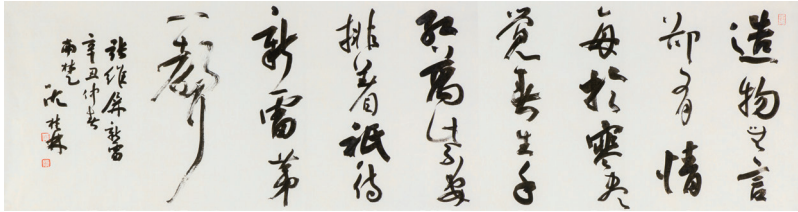 造物無言
却有情
每於寒盡
覺春生千
紅萬紫安
排着祇待
新雷第
一聲
張維屏新雷
辛丑仲春
南楚
桂林